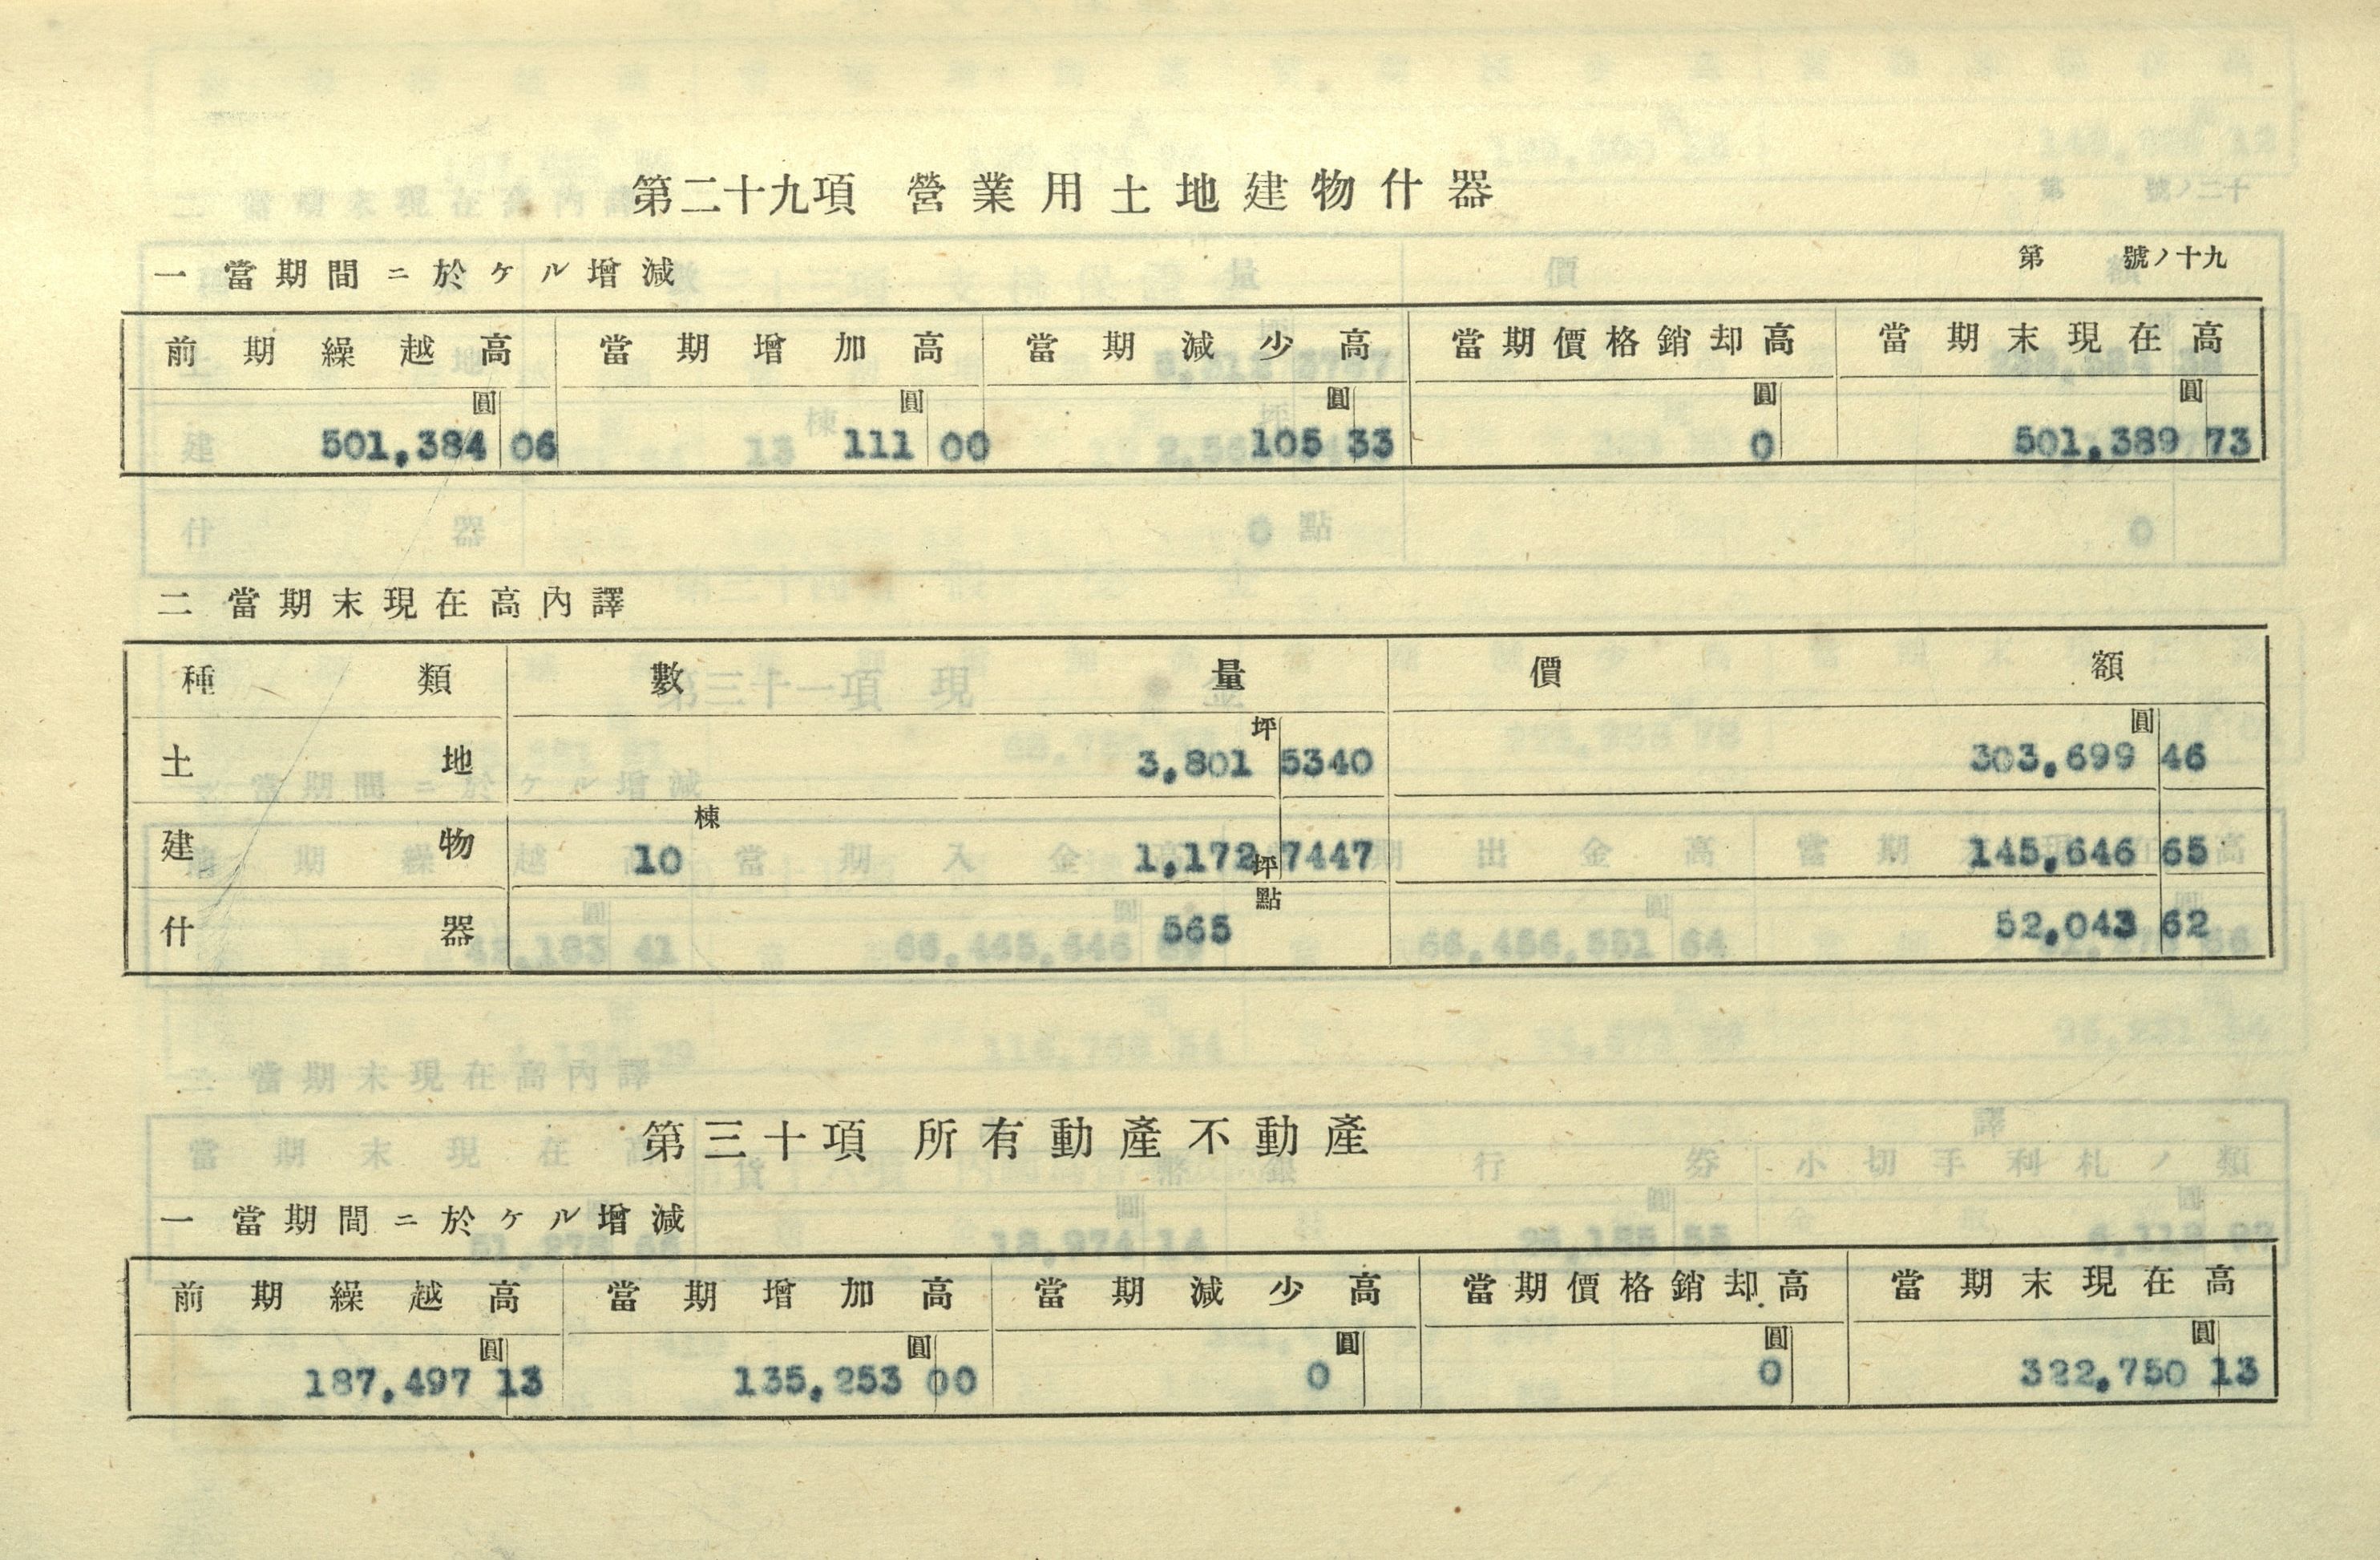 第二十九項 營業用土地建物什器
一 當期間ニ於ケル增減 第 號ノ十九
前期繰越高 當期增加高 當期減少高 當期價格銷却高 當期末現在高
圓 圓 圓 圓 圓
501,384 06 111 00 105 33 0 501,389 73
二 當期末現在高內譯
種類 數量 價額
坪 圓
土地 3,801 5340 303,699 46
棟
建物 10 1,172 坪 7447 145,646 65
點
什器 565 52,043 62
第三十項 所有動產不動產
一 當期間ニ於ケル增減
前期繰越高 當期增加高 當期減少高 當期價格銷却高 當期末現在高
圓 圓 圓 圓 圓
187,497 13 135,253 00 0 0 322,750 13